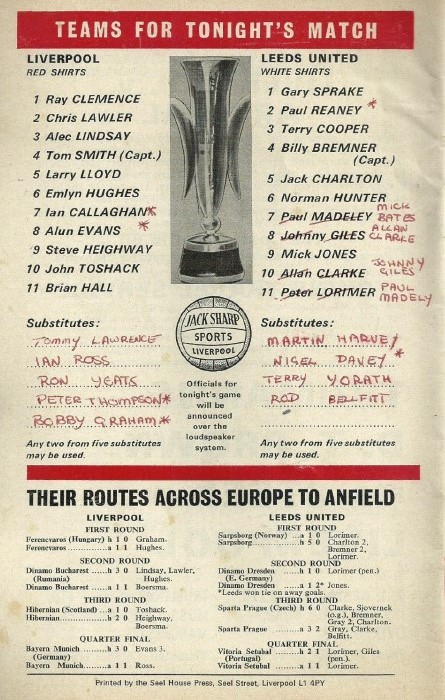 TEAMS FOR TONIGHT'S MATCH
LIVERPOOL
RED SHIRTS
1 Ray CLEMENCE
2 Chris LAWLER
3 Alec LINDSAY
4 Tom SMITH (Capt.)
5 Larry LLOYD
6 Emlyn HUGHES
7 Ian CALLAGHAN*
8 Alun EVANS *
9 Steve HEIGHWAY
10 John TOSHACK
11 Brian HALL
Substitutes:
TOMMY LAWRENCE
IAN ROSS
RON YEATS
PETER THOMPSON*
BOBBY GRAHAM*
Any two from five substitutes
may be used.
JACK SHARP
SPORTS
LIVERPOOL
Officials for
tonight's game
will be
announced
over the
loudspeaker
system.
LEEDS UNITED
WHITE SHIRTS
1 Gary SPRAKE
2 Paul REANEY *
3 Terry COOPER
4 Billy BREMNER
(Capt.)
5 Jack CHARLTON
6 Norman HUNTER
7 Paul MADELEY MICK BATES
8 Johnny GILES ALLAN CLARKE
9 Mick JONES
10 Allan CLARKE JOHNNY GILES
11 Peter LORIMER PAUL MADELY
Substitutes:
MARTIN HARVEY
NIGEL DAVEY *
TERRY YORATH
ROD BELFITT
Any two from five substitutes
may be used.
THEIR ROUTES ACROSS EUROPE TO ANFIELD
LIVERPOOL
FIRST ROUND
Ferencvaros (Hungary) h 1 0 Graham.
Ferencvaros..........a 1 1 Hughes.
SECOND ROUND
Dinamo Bucharest.....h 3 0 Lindsay, Lawler,
(Rumania) Hughes.
Dinamo Bucharest ....a 1 1 Boersma.
THIRD ROUND
Hibernian (Scotland) ...a 1 0 Toshack.
Hibernian..............h 2 0 Heighway,
Boersma.
QUARTER FINAL
Bayern Munich........h 3 0 Evans 3.
(Germany)
Bayern Munich........a 1 1 Ross.
LEEDS UNITED
FIRST ROUND
Sarpsborg (Norway) ...a 1 0 Lorimer.
Sarpsborg..............h 5 0 Charlton 2,
Bremner 2,
Lorimer.
SECOND ROUND
Dinamo Dresden ......h 1 0 Lorimer (pen.)
(E. Germany)
Dinamo Dresden ......a 1 2* Jones.
*Leeds won tie on away goals.
THIRD ROUND
Sparta Prague (Czech) h 6 0 Clarke, Sjovernek
(o.g.), Bremner,
Gray 2, Charlton.
Sparta Prague ........a 3 2 Gray, Clarke,
Belfitt.
QUARTER FINAL
Vitoria Setubal .......h 2 1 Lorimer, Giles
(Portugal) (pen.).
Vitoria Setubal .......a 1 1 Lorimer.
Printed by the Seel House Press, Seel Street, Liverpool L1 4PY